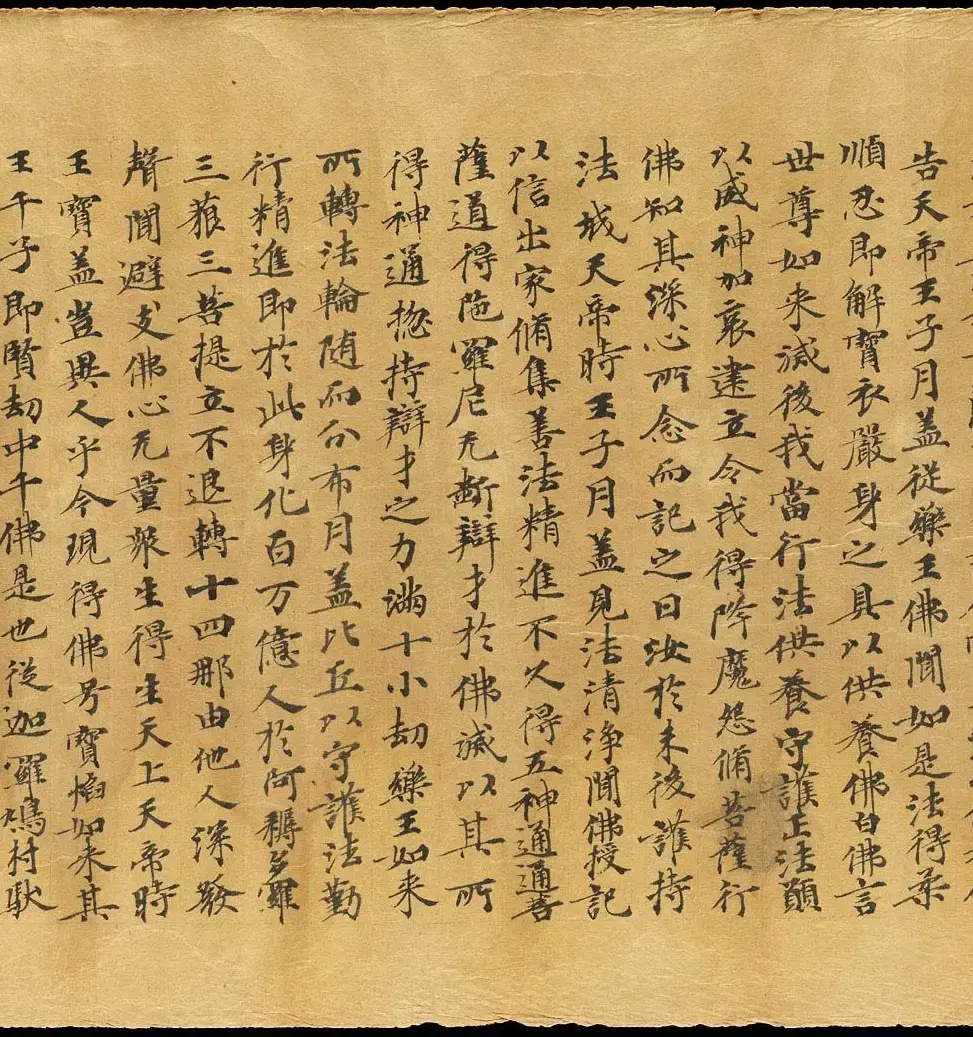 告天帝王子月盖從藥王佛聞如是法得柔
順忍即解寶衣嚴身之具以供養佛白佛言
世尊如来滅後我當行法供養守護正法願
以威神加哀建立令我得降魔怨脩菩薩行
佛知其深心所念而記之曰汝於未後護持
法城天帝時王子月盖見法清淨聞佛授記
以信出家脩集善法精進不久得五神通通菩
薩道得陁羅尼无断辯才於佛滅以其所
得神通揔持辯才之力滿十小劫藥王如来
所轉法輪随而分布月盖比丘以守護法勤
行精進即於此身化百万億人於阿耨多羅
三藐三菩提立不退轉十四那由他人深發
聲聞辟支佛心无量衆生得生天上天帝時
王寶盖豈異人乎今現得佛号寶焰如来其
王千子即賢劫中千佛是也從迦羅鳩村馱